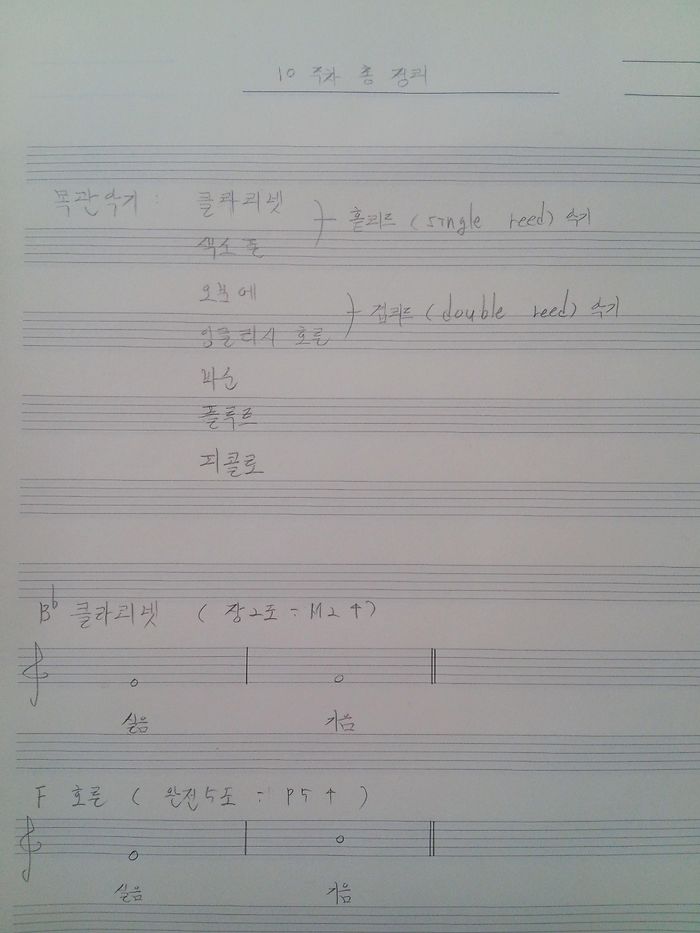 10 주차 총 정리
목관악기 : 클라리넷
홑리드 (single reed) 악기
색소폰
오보에
겹리드 (double reed) 악기
잉글리시 호른
바순
플루트
피콜로
B♭ 클라리넷 ( 장2도 : M2 ↑)
실음 기음
F 호른 ( 완전5도 : P5 ↑ )
실음 기음